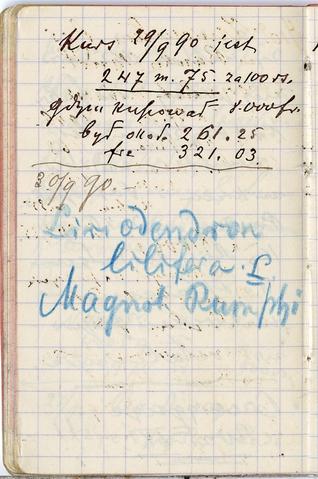 Kurs 29/9 90 jest
247 m. 75 za 100 rs.
gdym kupował 8000 fr.
był okoł. 261.25
frc 321.03
30/9 90.—
Liriodendron
lilifera L.
Magnol Rumphi